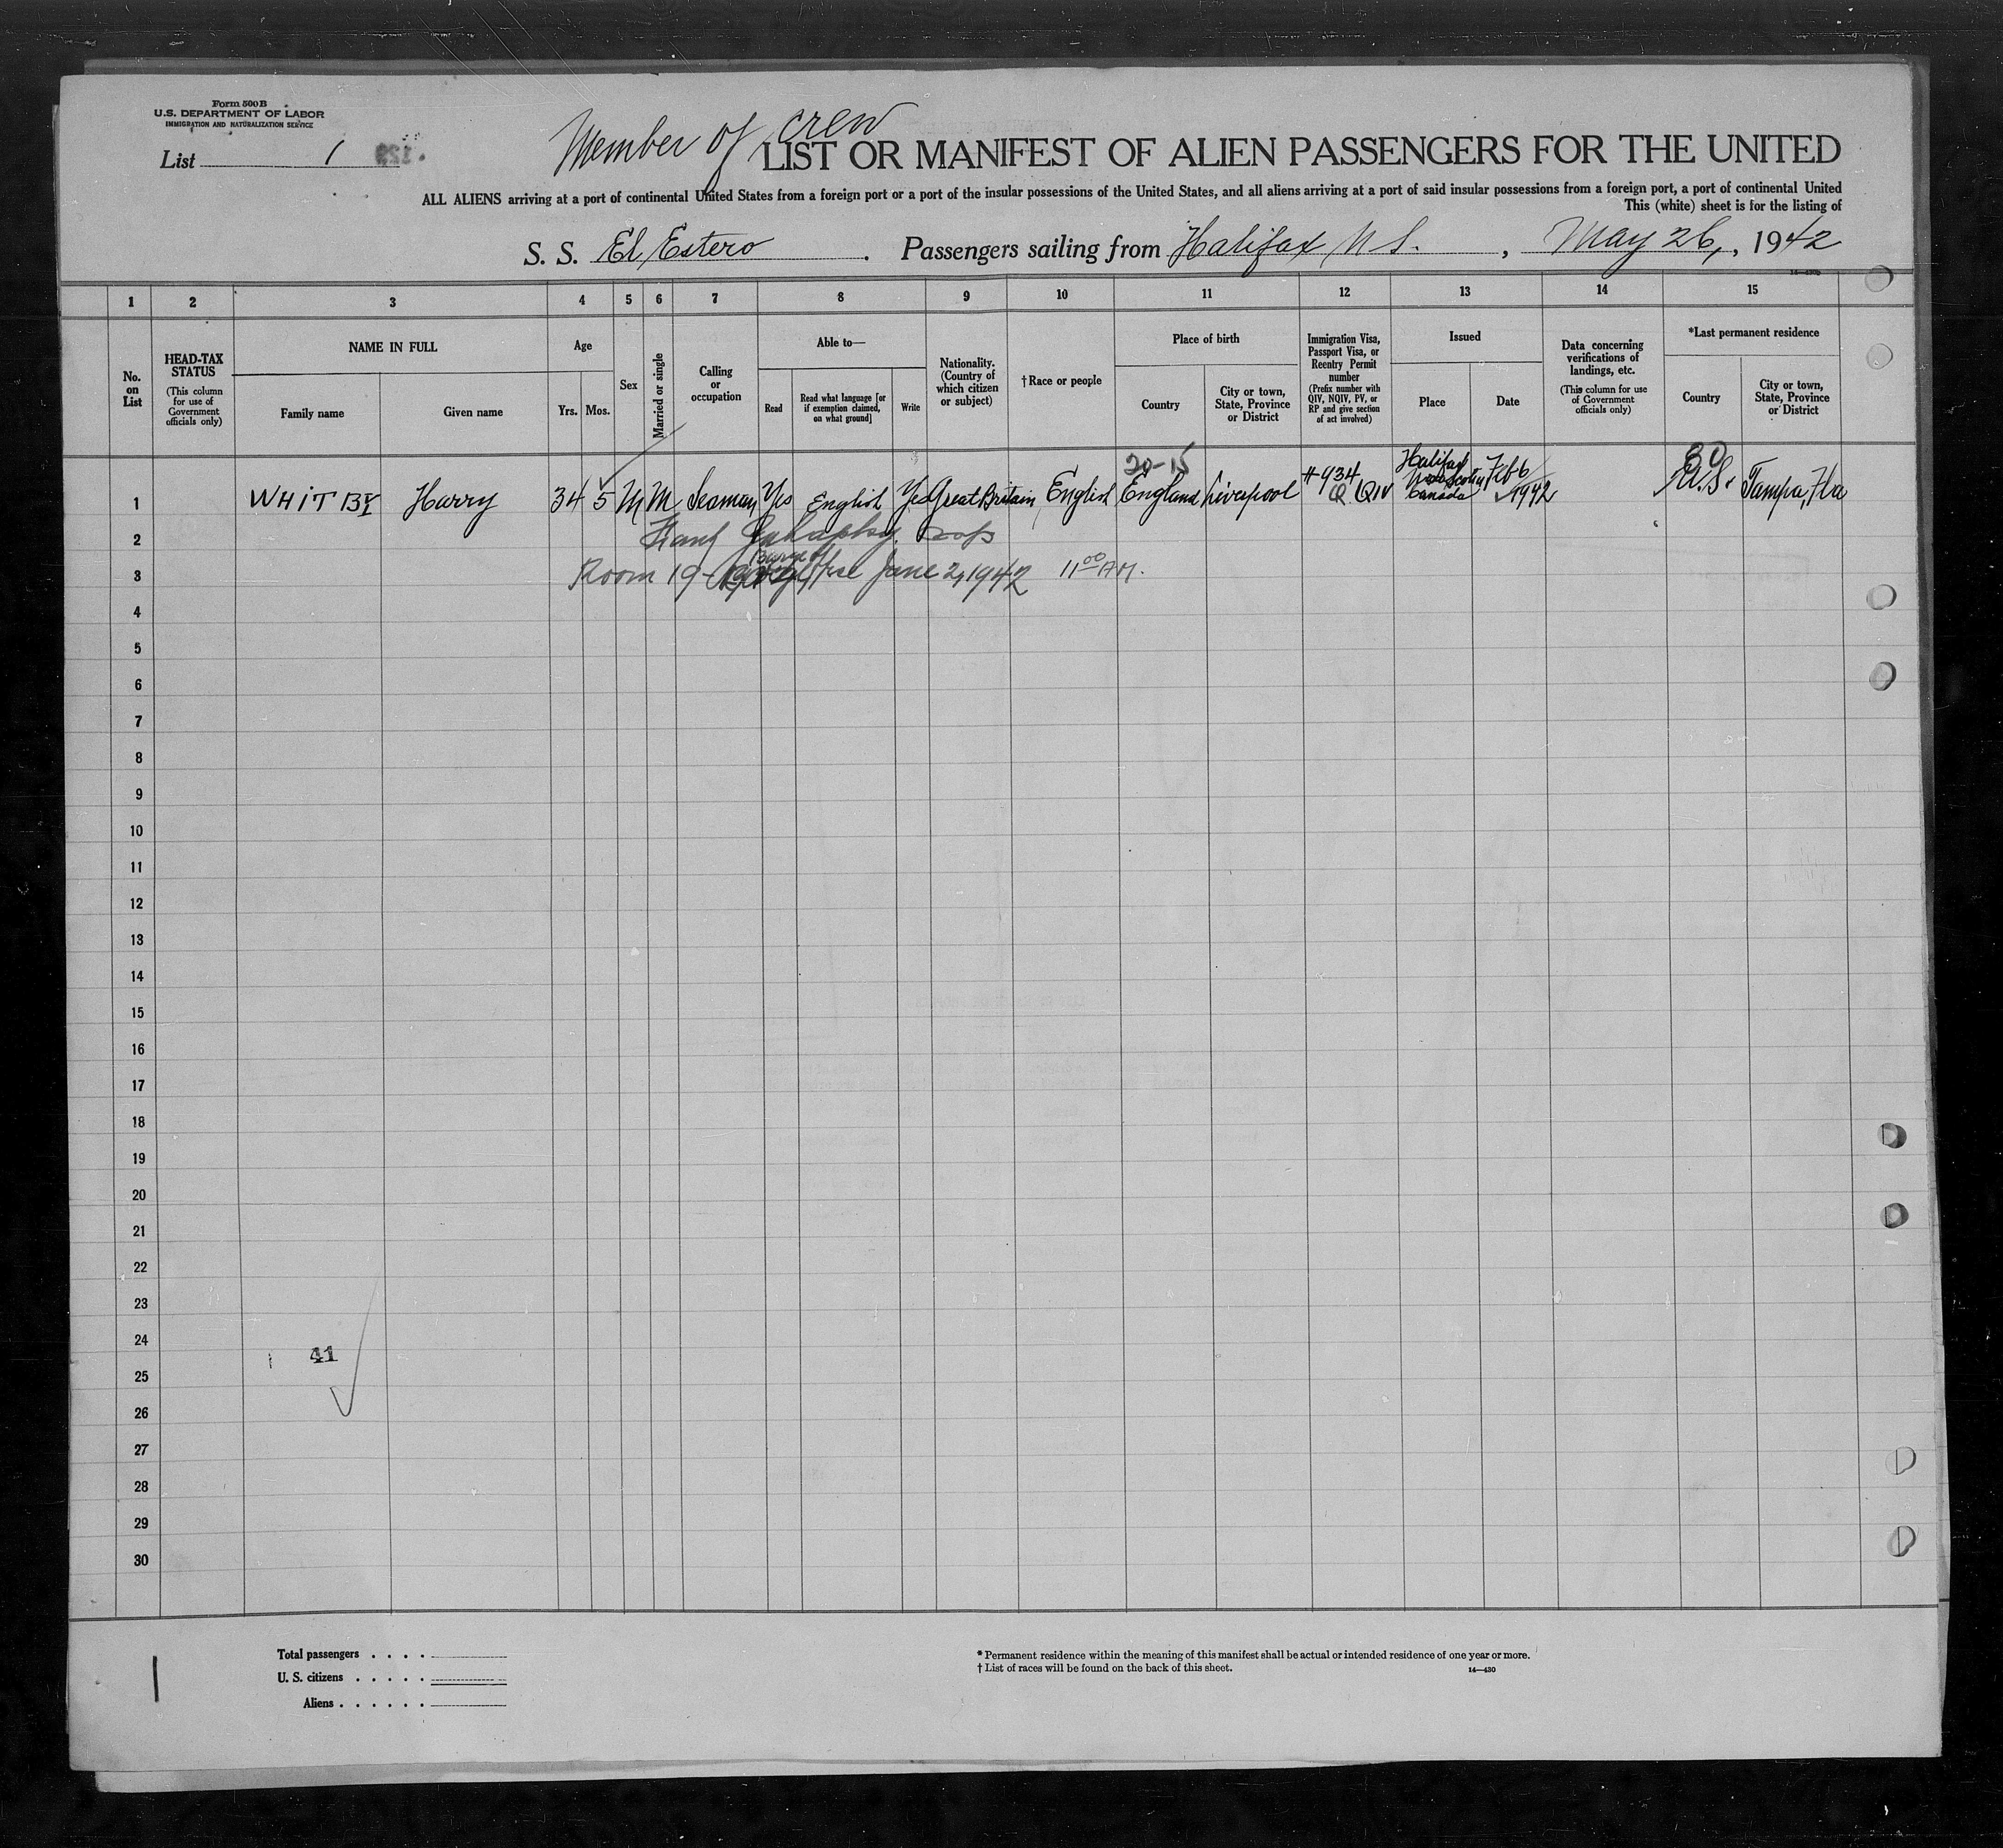 Form 500B
U.S. DEPARTMENT OF LABOR
IMMIGRATION AND NATURALIZATION SERVICE
List 1
Member of crew
LIST OR MANIFEST OF ALIEN PASSENGERS FOR THE UNITED
ALL ALIENS arriving at a port of continental United States from a foreign port or a port of the insular possessions of the United States, and all aliens arriving at a port of said insular possessions from a foreign port, a port of continental United
This (white) sheet is for the listing of
S. S. El Estero. Passengers sailing from Halifax N S., May 26, , 1942
1 2 3 4 5 6 7 8 9 10 11 12 13 14 15
No. on List
HEAD-TAX STATUS
(This column for use of Government officials only)
NAME IN FULL
Family name
Given name
Age
Yrs. Mos.
Sex
Married or single
Calling or occupation
Able to—
Read
Read what language [or if exemption claimed, on what ground]
Write
Nationality. (Country of which citizen or subject)
†Race or people
Place of birth
Country
City or town, State, Province or District
Immigration Visa, Passport Visa, or Reentry Permit number
(Prefix number with QIV, NQIV, PV, or RP and give section of act involved)
Issued
Place
Date
Data concerning verifications of landings, etc.
(This column for use of Government officials only)
*Last permanent residence
Country
City or town, State, Province or District
20-15
1 WHITBY Harry 34 5 M M Seaman Yes English Yes Great Britain English England Liverpool #934 QIV Halifax Nova Scotia Canada Feb 6 1942 U.S. Tampa, Fla
2
3 Room 19- June 2, 1942 11 00 AM.
4
5
6
7
8
9
10
11
12
13
14
15
16
17
18
19
20
21
22
23
24
41
25
26
27
28
29
30
Total passengers . . . .
U. S. citizens . . . . .
Aliens . . . . . .
* Permanent residence within the meaning of this manifest shall be actual or intended residence of one year or more.
† List of races will be found on the back of this sheet.
14—430